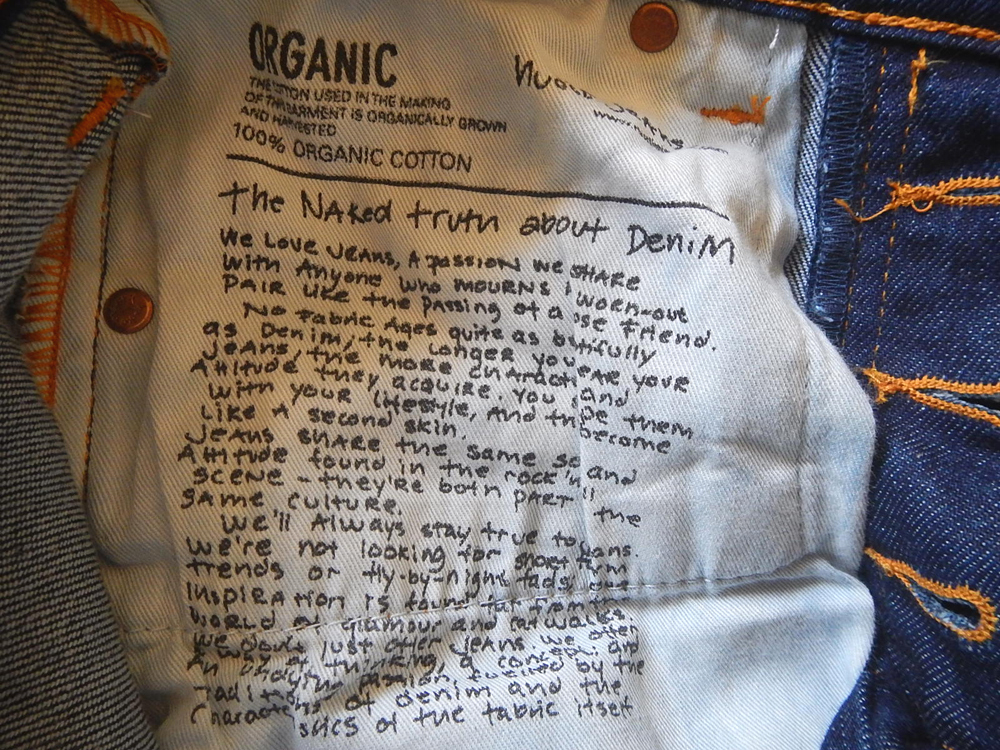 ORGANIC
THE COTTON USED IN THE MAKING
OF THIS GARMENT IS ORGANICALLY GROWN
AND HARVESTED
100% ORGANIC COTTON
www.
the Naked truth about Denim
We Love Jeans, A passion we share
with Anyone who mourns worn-out
pair like the passing of a friend.
No fabric Ages quite as
as Denim, the longer you your
Jeans, the more
Attitude they acquire. you and
with your lifestyle, and them
like a second skin. become
Jeans share the same and
Attitude found in the rock'n
scene - they're both part the
same culture.
We'll Always stay true to
we're not looking for short term
trends or fly-by-night fads, our
inspiration is found far from the
world of glamour and catwalks.
we don't just offer jeans we offer
An of thinking, a concept. and
An passion fuelled by the
traditions of denim and the
of the fabric itself